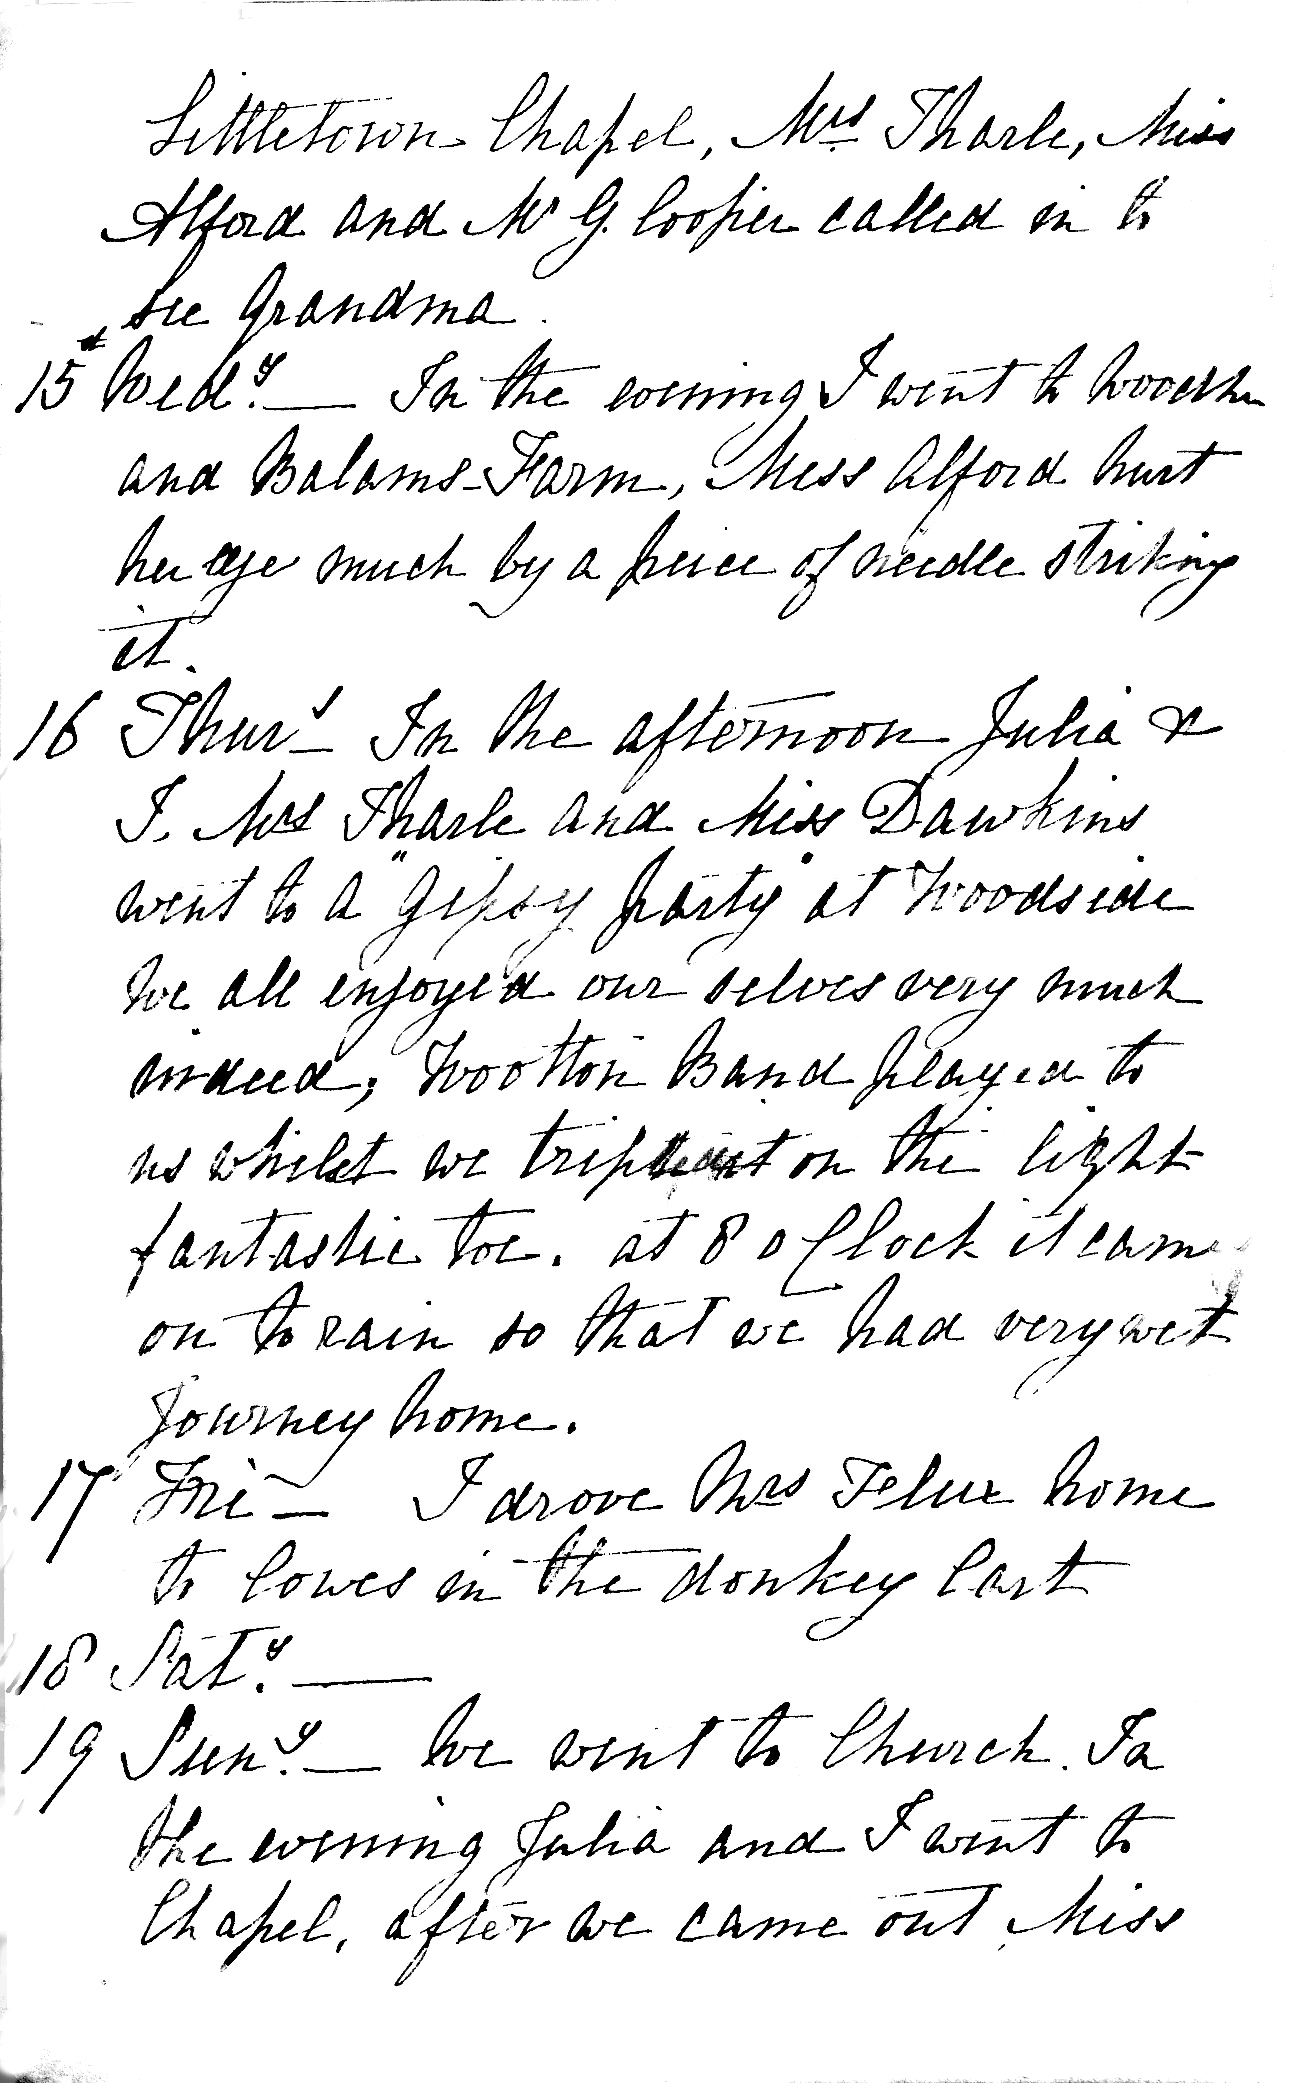 Littletown Chapel, Mrs Tharle, Miss
Alford and Mr G. Cooper called in to
see Grandma.
15 Wedy. — In the evening I went to
and Balams Farm, Miss Alford hurt
her eye much by a peice of needle striking
it.
16 Thury — In the afternoon Julia &
I. Mrs Tharle and Miss Dawkins
went to a "Gipsy party" at Woodside
We all enjoyed our selves very much
indeed, Wootton Band played to
us whilst we on the light
fantastic toe. at 8 o Clock it came
on to rain so that we had very wet
Journey home.
17 Fri — I drove Mrs home
to Cowes in the donkey Cart
18 Saty. —
19 Suny. — We went to Church. In
the evening Julia and I went to
Chapel, after we came out Miss